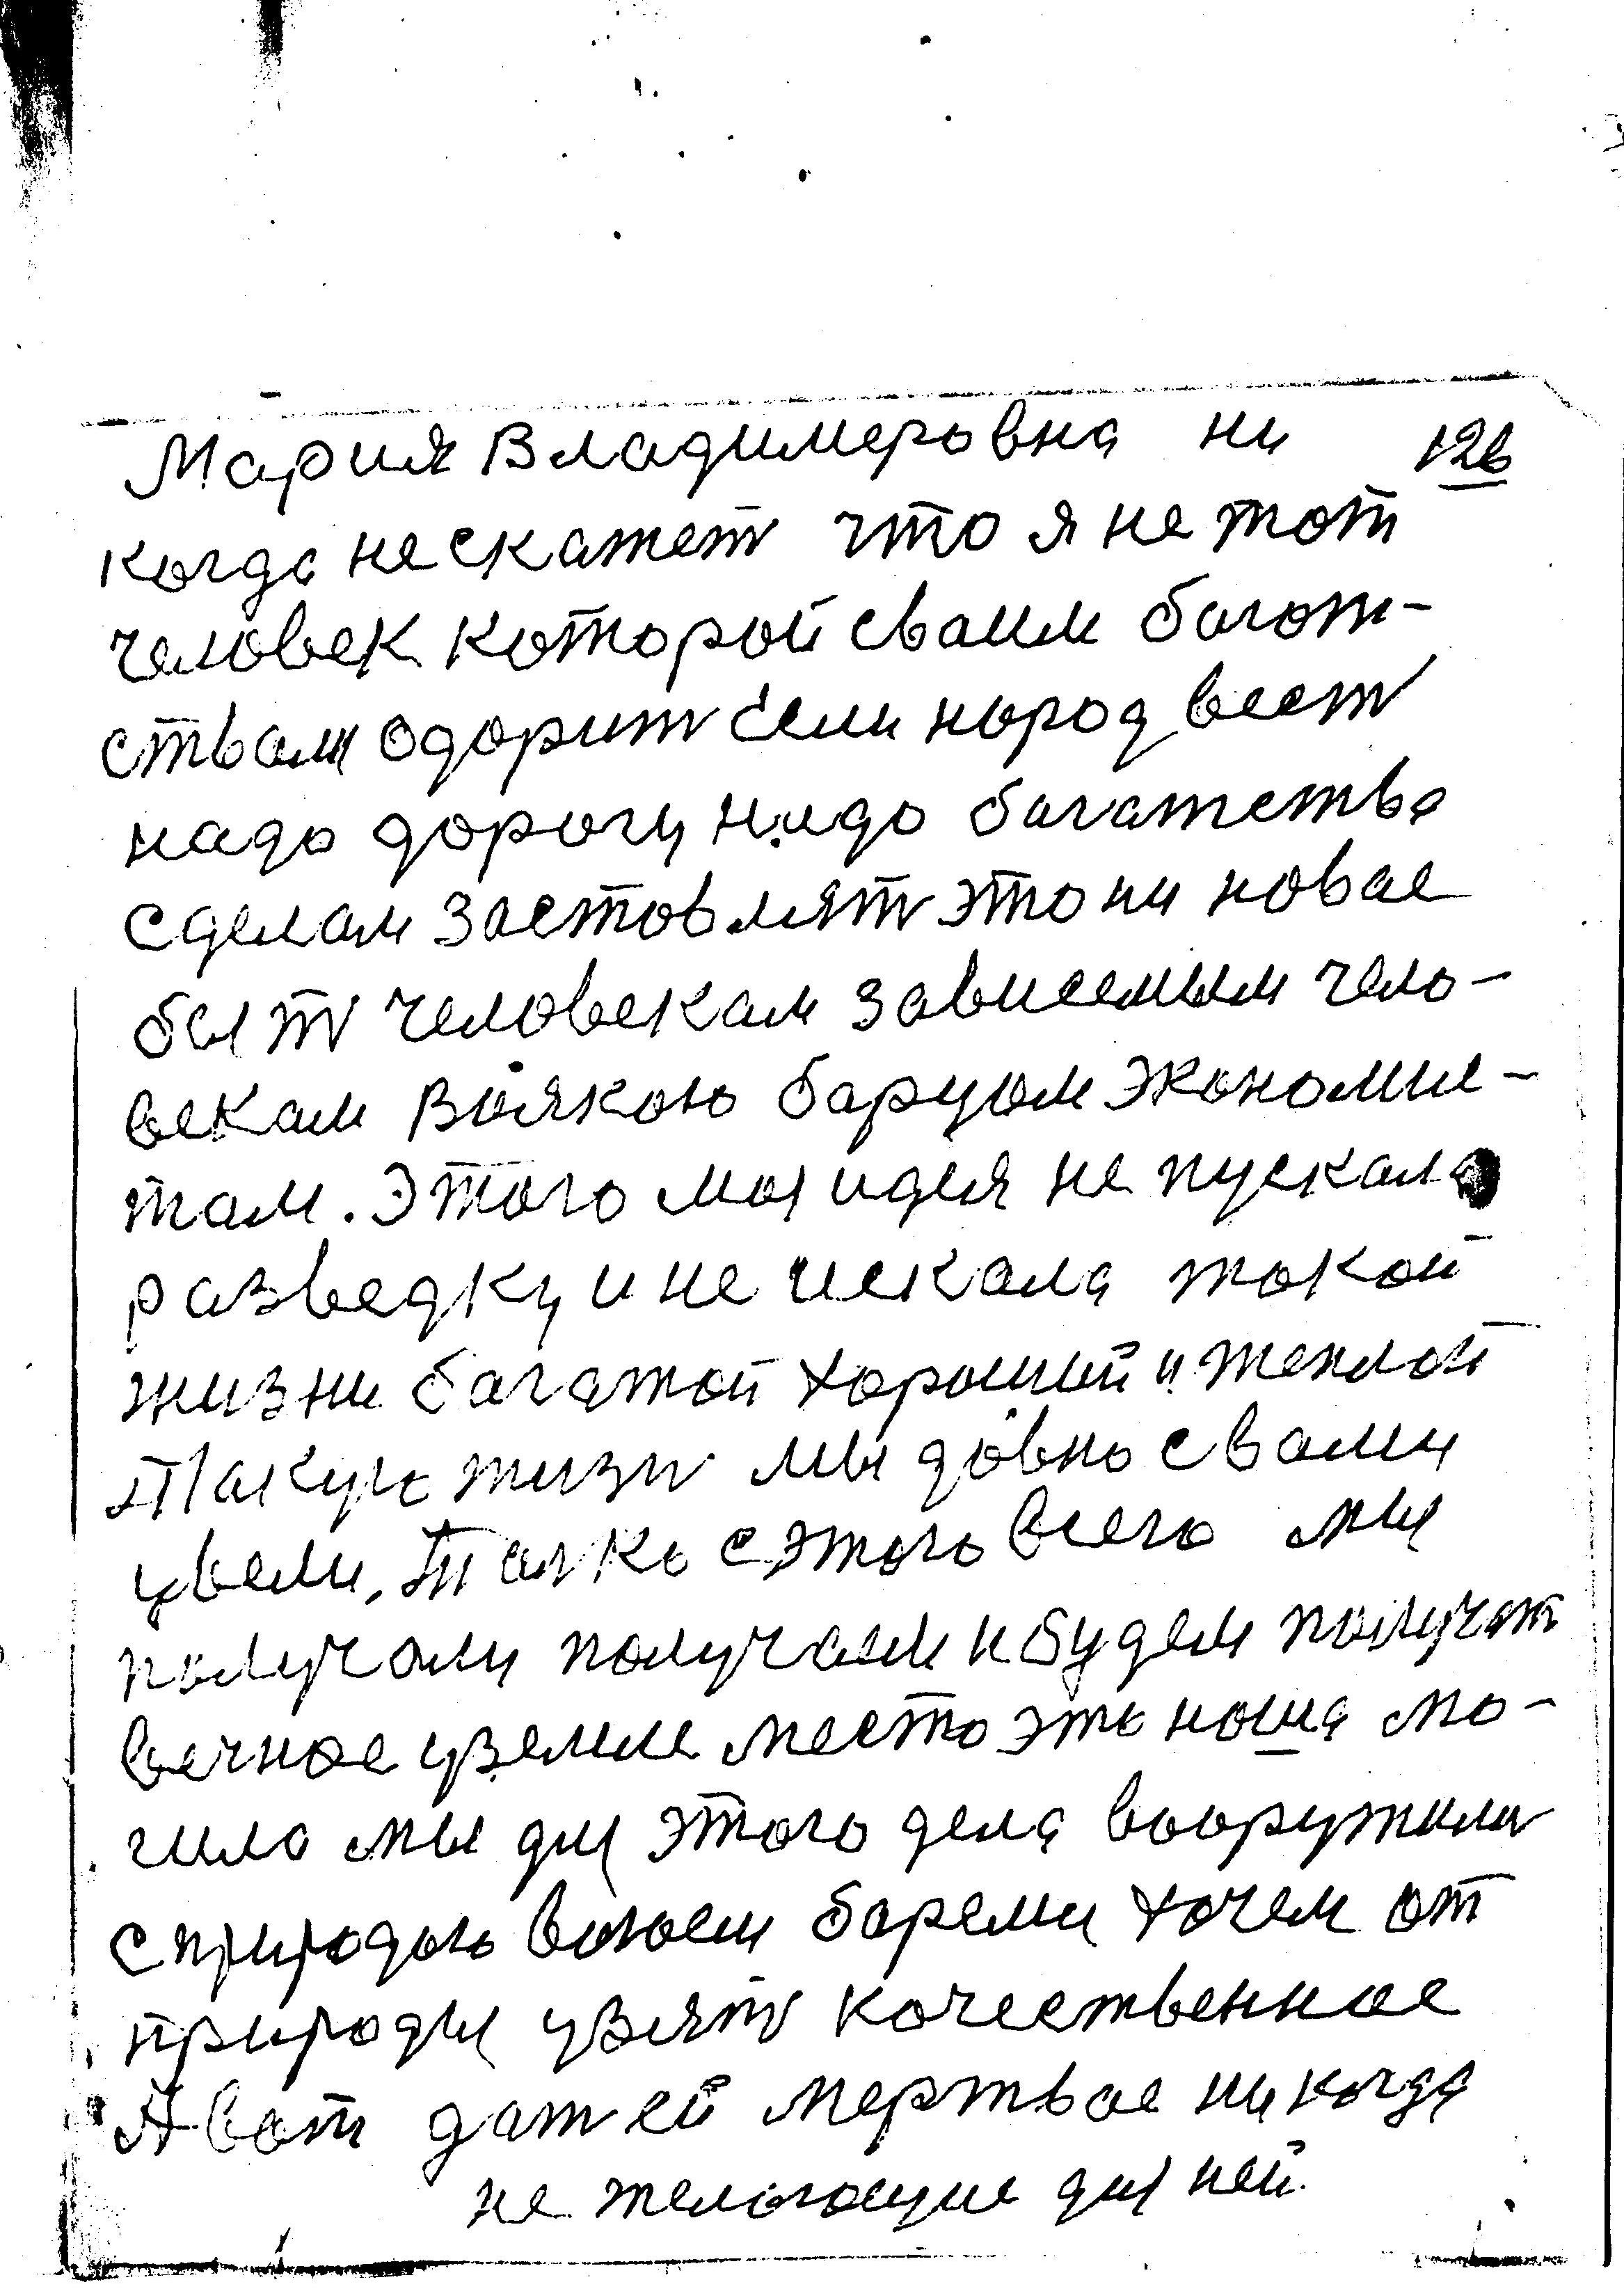 Мария Владимеровна ни 126
когда не скажет что я не тот
человек которой сваим богот-
ствам одорит Если народ весть
нада дорогу нида багатства
сделам заставлят это ни новае
быть человекам зависемым чело-
векам всякою барцом экономис-
там. Этого моя идея не пускала
разведку и не искала токой
жизни багатой хорошый и теплой
Такую жизн мы довно с вами
увели. Толко с этого всего мы
получали получаем и будем получат
вечное уземле место это наша мо-
гила мы для этого дела вооружилис
с природою воюем боремси хочем от
природы узять качественное
А вот дат ей мертвае никогда
не желающие для ней.